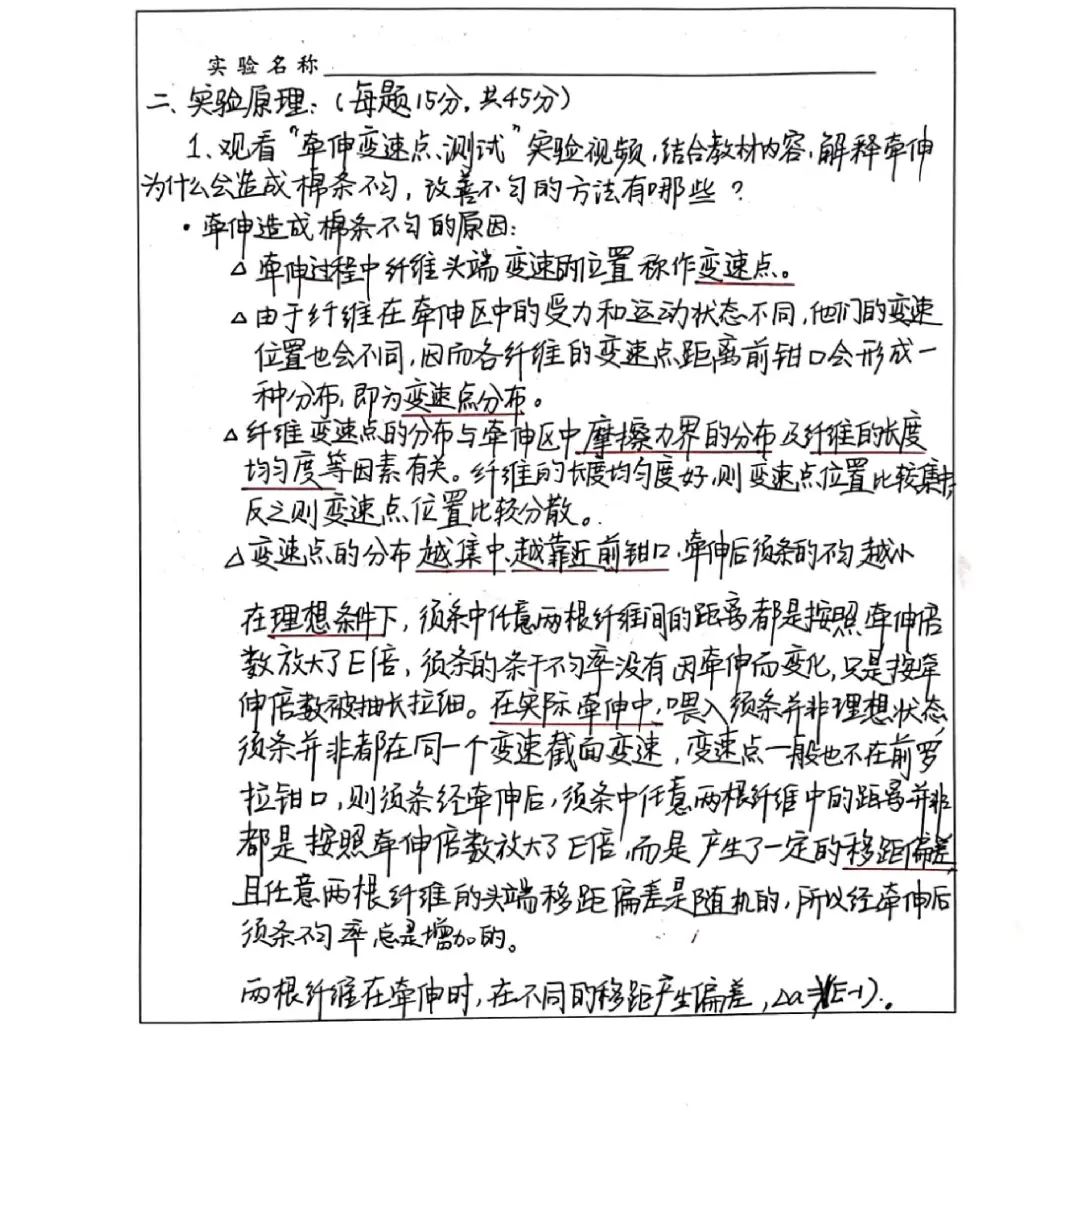 实验名称
二、实验原理：（每题15分，共45分）
1、观看“牵伸变速点测试”实验视频，结合教材内容，解释牵伸
为什么会造成棉条不匀，改善不匀的方法有哪些？
·牵伸造成棉条不匀的原因：
△牵伸过程中纤维头端变速的位置称作变速点。
△由于纤维在牵伸区中的受力和运动状态不同，他们的变速
位置也会不同，因而各纤维的变速点距离前钳口会形成一
种分布，即为变速点分布。
△纤维变速点的分布与牵伸区中摩擦力界的分布及纤维的长度
均匀度等因素有关。纤维的长度均匀度好，则变速点位置比较集中，
反之则变速点位置比较分散。
△变速点的分布越集中、越靠近前钳口，牵伸后须条的不匀越小
在理想条件下，须条中任意两根纤维间的距离都是按照牵伸倍
数放大了E倍，须条的条干不匀率没有因牵伸而变化，只是按牵
伸倍数被抽长拉细。在实际牵伸中，喂入须条并非理想状态，
须条并非都在同一个变速截面变速，变速点一般也不在前罗
拉钳口，则须条经牵伸后，须条中任意两根纤维中的距离并非
都是按照牵伸倍数放大了E倍，而是产生了一定的移距偏差，
且任意两根纤维的头端移距偏差是随机的，所以经牵伸后
须条不匀率总是增加的。
两根纤维在牵伸时，在不同的移距产生偏差，△a=(E-1)。